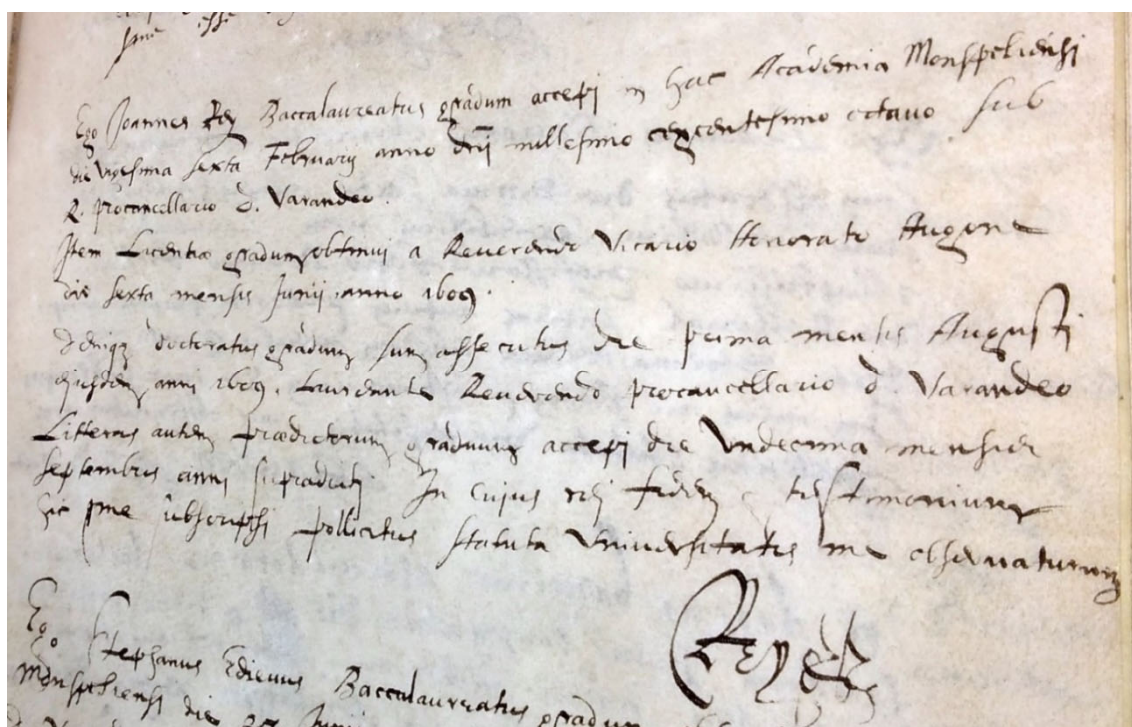 Ego Joannes Rey Baccalaureatus gradum accepi in hac Academia Monspeliensi
die vigesima sexta Februarij anno dnj millesimo sexcentesimo octavo sub
R. procancellario d. Varandeo.
Item Licentiæ gradum obtinui a Reverendo Vicario Honorato Hugone
die sexta mensis Junii anno 1609.
deniqz doctoratus gradum sum assecutus die prima mensis Augusti
ejusdem anni 1609. Laureante Reverendo procancellario d. Varandeo
Litteras autem prædictorum graduum accepi die Undecima mensis
septembris anni supradicti. In cujus rej fidem & testimonium
hic me subscripsi pollicitus statuta Universitatis me observaturum
Rey
Ego Stephanus Baccalaureatus gradum
Monspeliensi die Junii